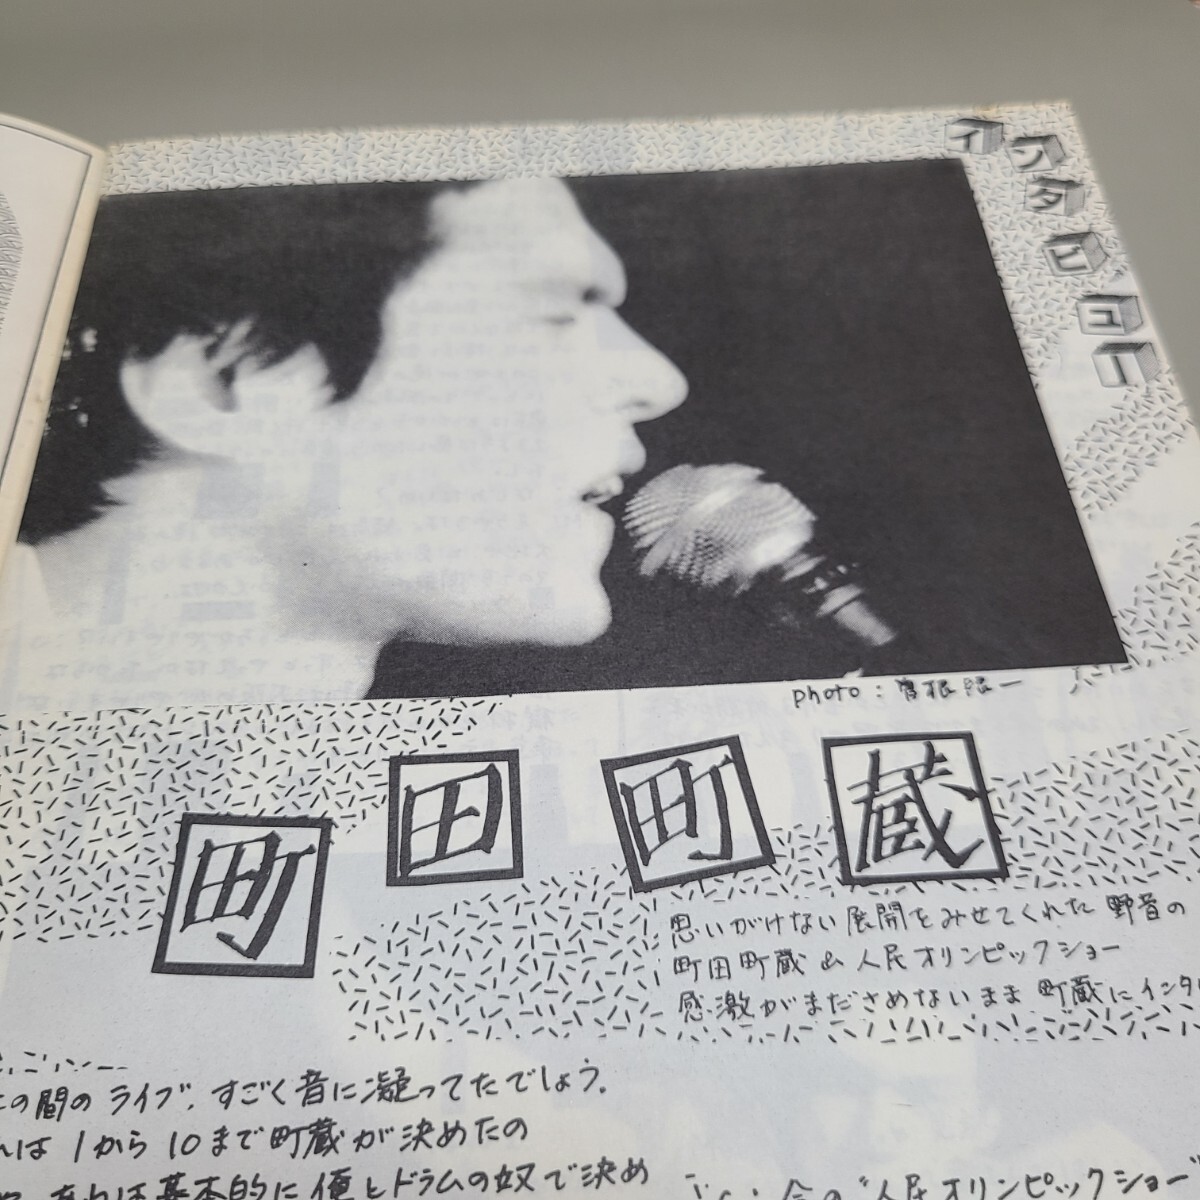 インタビュー
photo：曽根
町田町蔵
思いがけない展開をみせてくれた野音の
町田町蔵＆人民オリンピックショー
感激がまださめないまま町蔵にインタ
の間のライブ、すごく音に凝ってたでしょう。
は1から10まで町蔵が決めたの
基本的に俺とドラムの奴で決め
今の"人民オリンピックショー"